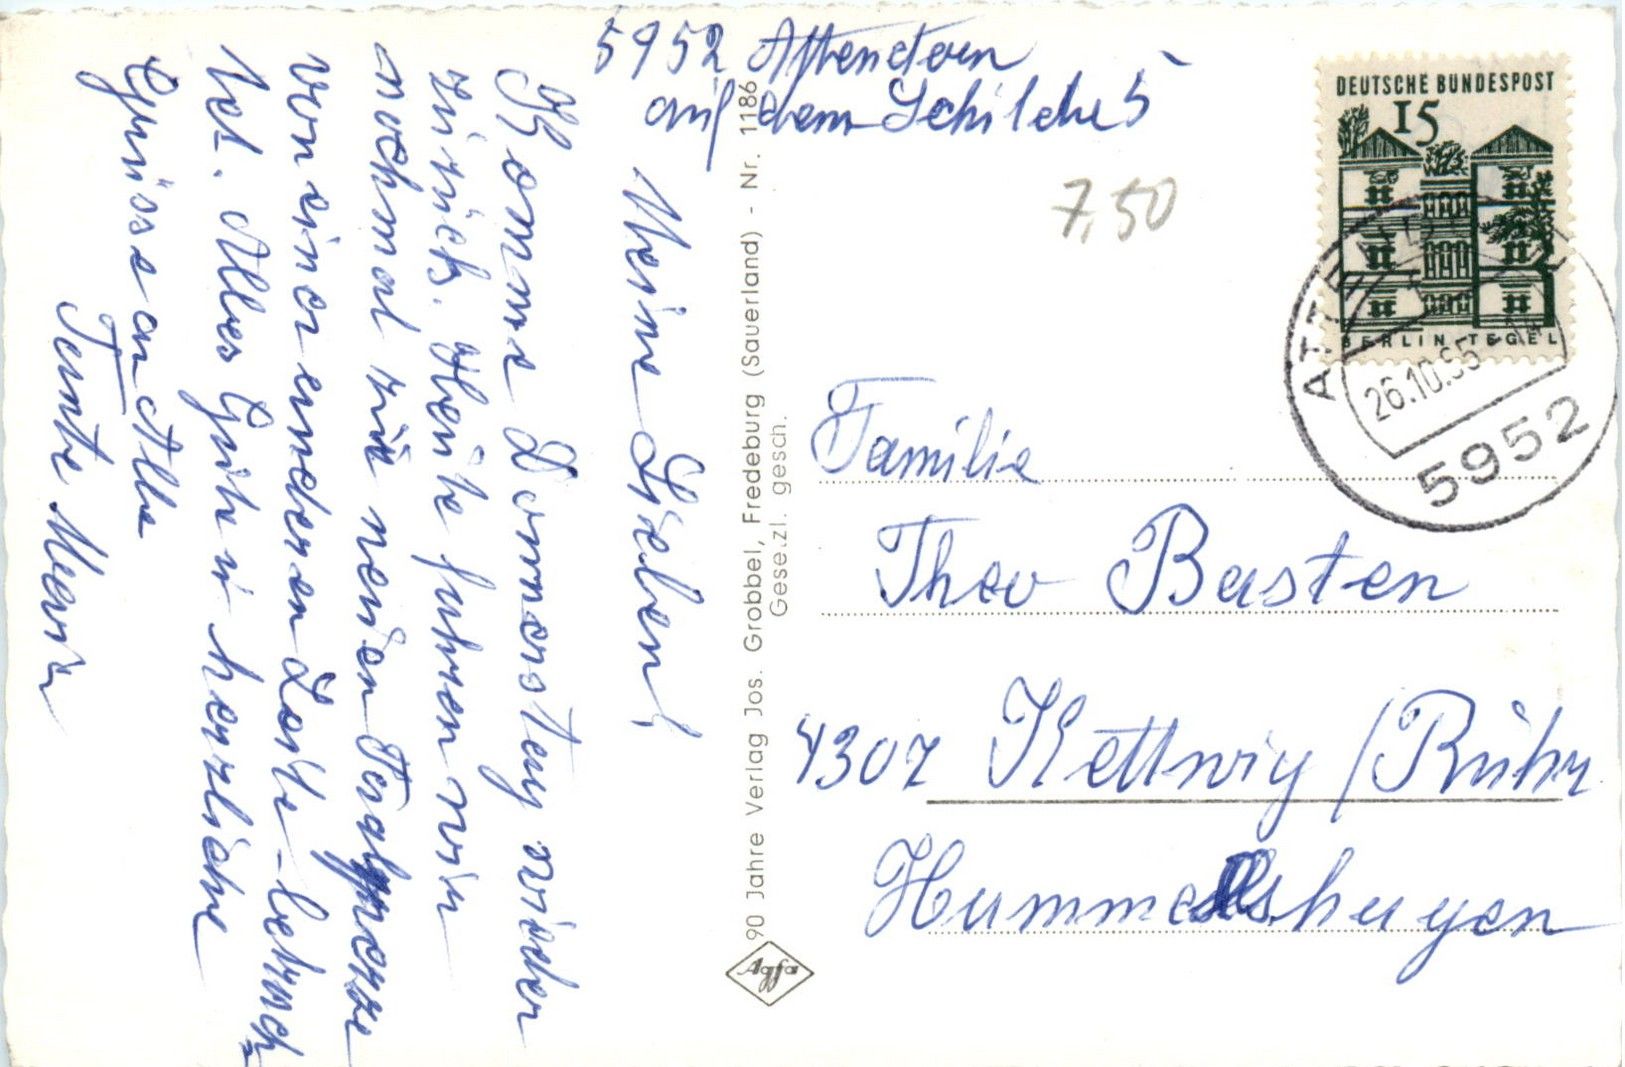 5952 Attendorn
auf dem Schilde 5
Meine Lieben!
Komme Donnerstag wieder
zurück. Heute fuhren wir
nochmal zur neuen Talsperre
von einer anderen Seite betrach=
tet. Alles Gute u. herzliche
Grüsse an Alle
Tante Maria
90 Jahre Verlag Jos. Grobbel, Fredeburg (Sauerland) - Nr. 1186
Gesezl. gesch.
Agfa
7,50
DEUTSCHE BUNDESPOST
15
BERLIN TEGEL
26.10.65
5952
Familie
Theo Basten
4307 Kettwig / Ruhr
Hummelshagen